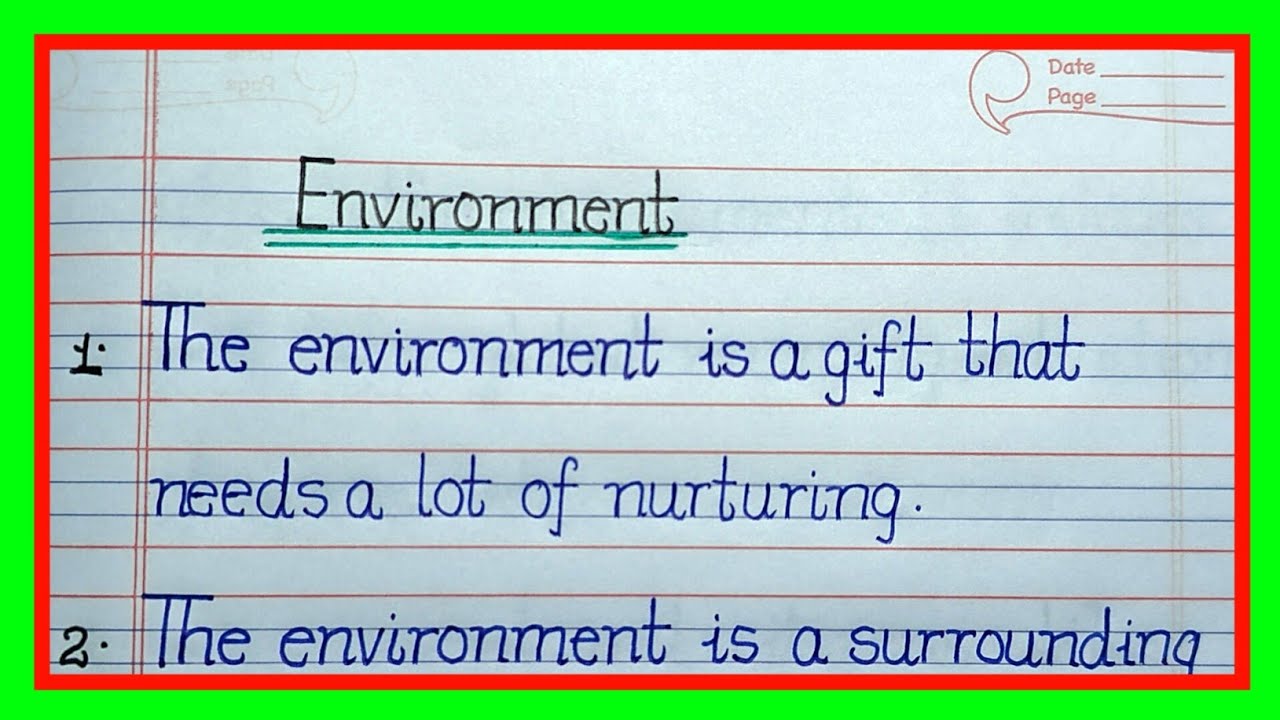 Date
Page
Environment
1. The environment is a gift that
needs a lot of nurturing.
2. The environment is a surrounding